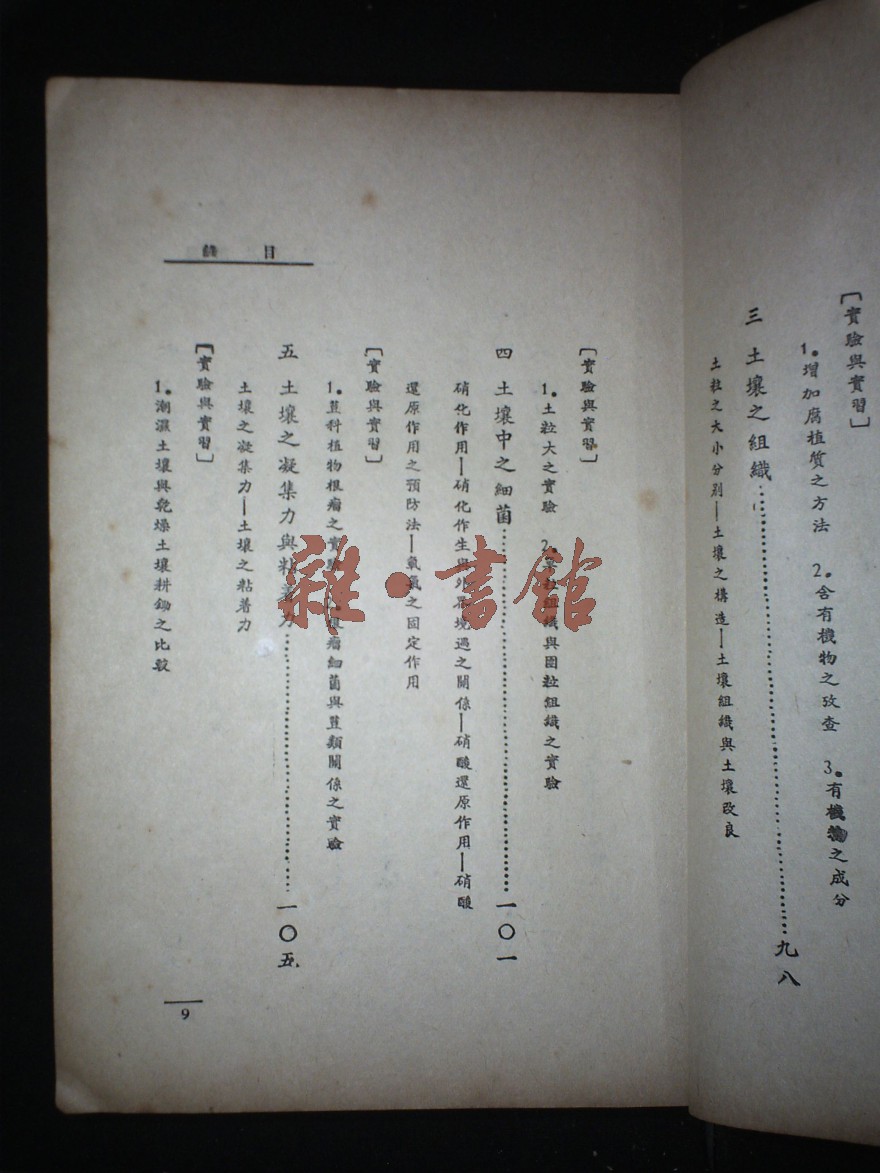 〔實驗與實習〕
1.增加腐植質之方法 2.含有機物之攷查 3.有機物之成分
三 土壤之組織……九八
土粒之大小分別—土壤之構造—土壤組織與土壤改良
目錄
〔實驗與實習〕
1.土粒大之實驗 2.單粒組織與團粒組織之實驗
四 土壤中之細菌……一〇一
硝化作用—硝化作生與外界境遇之關係—硝酸還原作用—硝酸
還原作用之預防法—氧氣之固定作用
〔實驗與實習〕
1.荳科植物根瘤之實驗 根瘤細菌與荳類關係之實驗
五 土壤之凝集力與粘着力……一〇五
土壤之凝集力—土壤之粘着力
〔實驗與實習〕
1.潮濕土壤與乾燥土壤耕鋤之比較
9
雜·書館